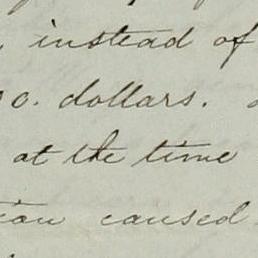 instead of
0. dollars.
at the time
caused